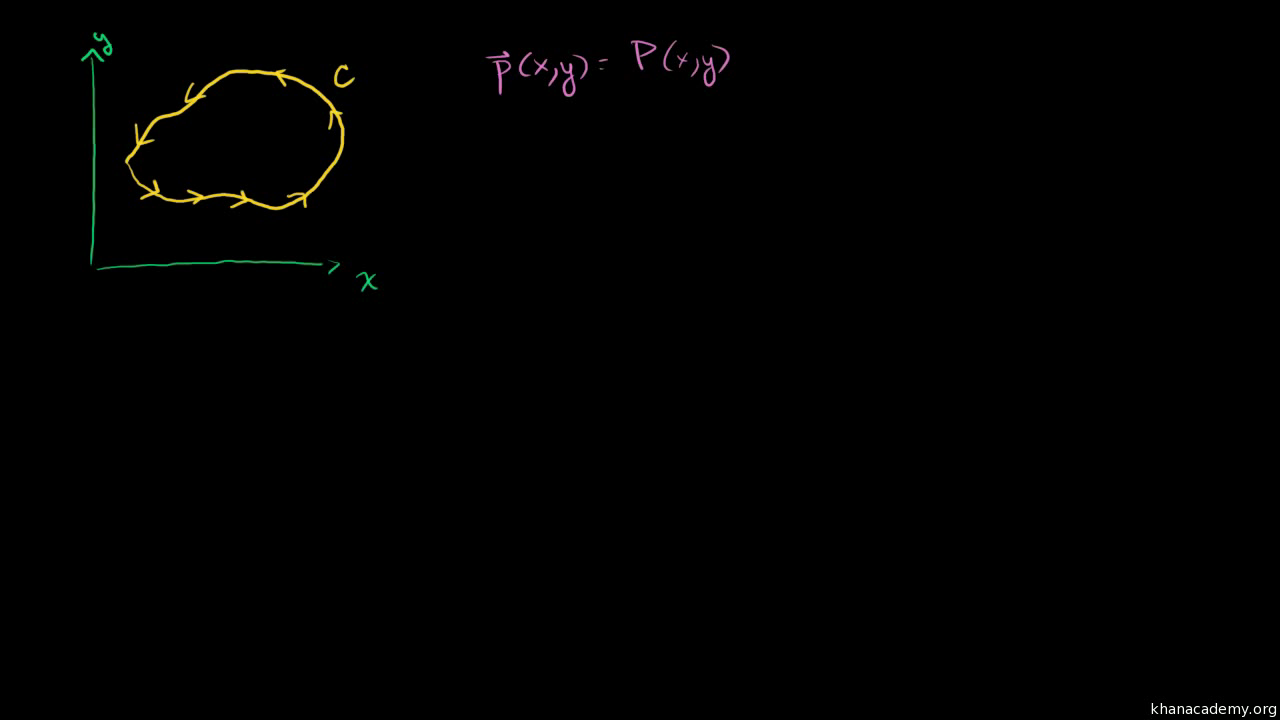 y
C
x
p⃗(x,y) = P(x,y)
khanacademy.org